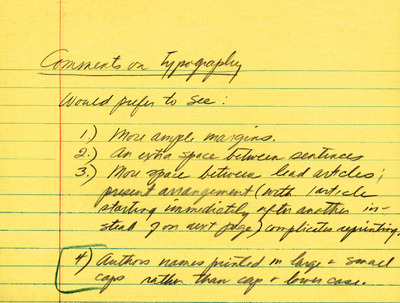 Comments on Typography
Would prefer to see:
1.) More ample margins.
2.) An extra space between sentences
3.) More space between lead articles;
present arrangement (with 1 article
starting immediately after another in-
stead of on next page) complicates reprinting.
4) Authors names printed in large & small
caps rather than cap & lower case.